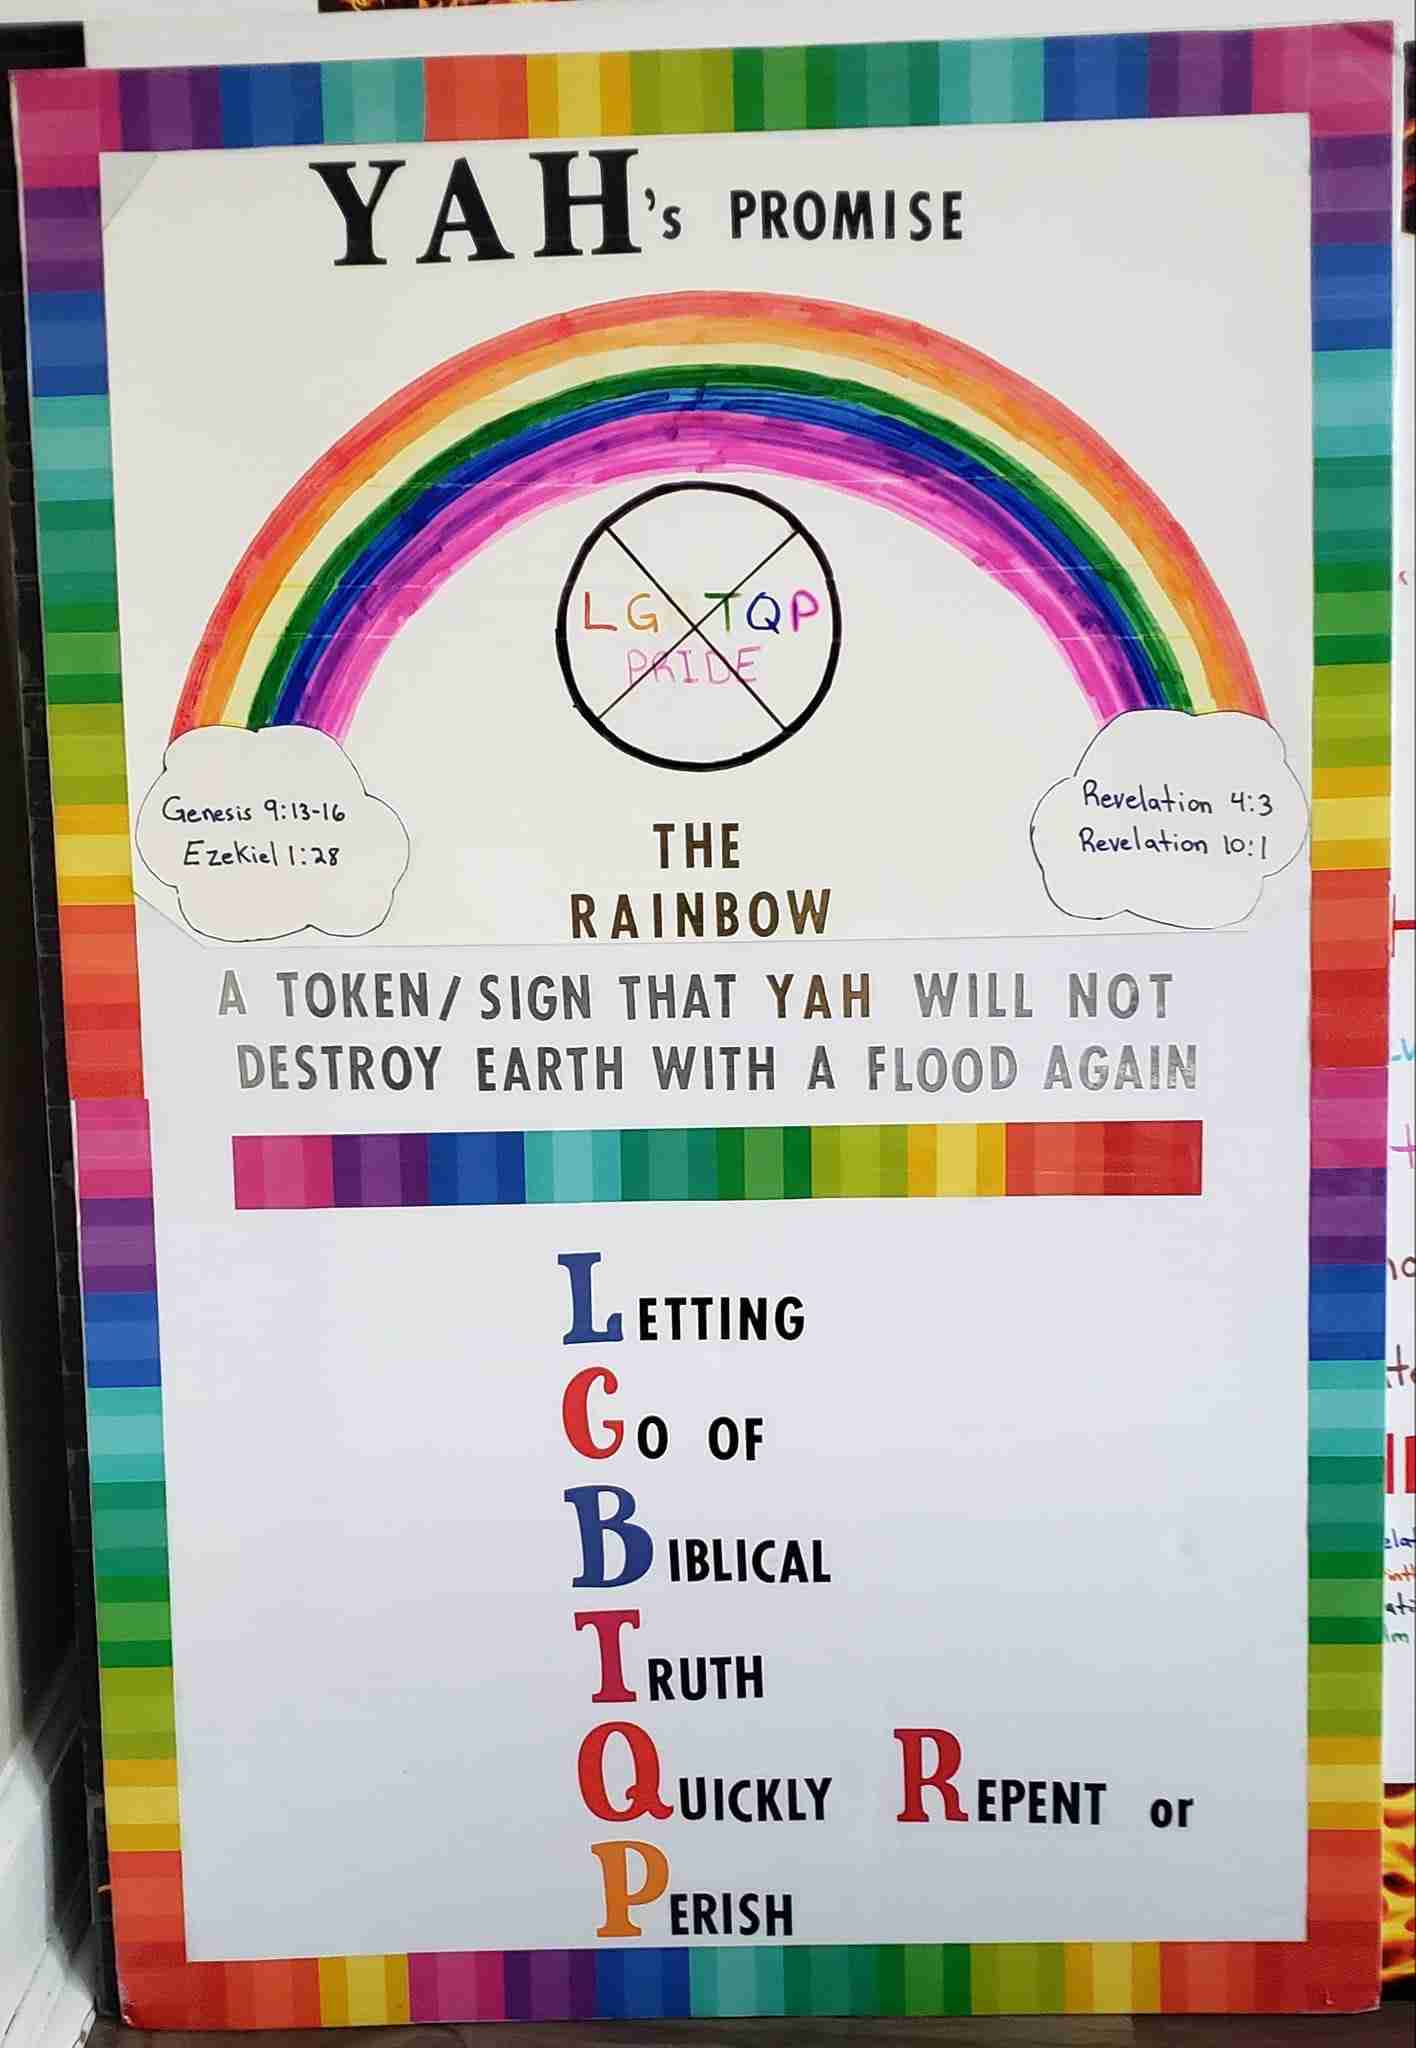 YAH's PROMISE
LG TQP
PRIDE
Genesis 9:13-16
Ezekiel 1:28
Revelation 4:3
Revelation 10:1
THE
RAINBOW
A TOKEN/SIGN THAT YAH WILL NOT
DESTROY EARTH WITH A FLOOD AGAIN
LETTING
GO OF
BIBLICAL
TRUTH
QUICKLY REPENT or
PERISH